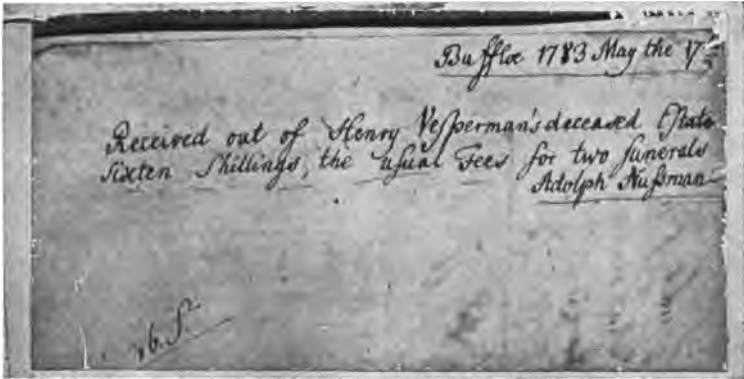 Buffloe 1783 May the
Received out of Henry Veßperman's deceased Eſtate
Sixten Shillings, the uſual Fees for two funerals
Adolph Nußman